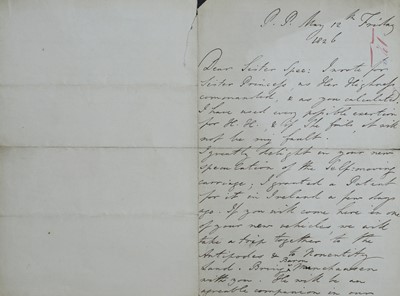 P. P. May 12th Friday
1826
Dear Sister Spec: I wrote for
Sister Princess, as Her Highness
commanded, & as you calculated,
I have used every possible exertion
for H. H. & if I fail, it will
not be my fault.
I greatly delight in your new
speculation of the Self-moving
carriage; I granted a Patent
for it in Ireland a few days
ago. If you will come here in one
of your new vehicles we will
take a trip together to the
Antipodes & to Nonentity
Land. Bring Baron Munchausen
with you. He will be an
agreeable companion in our